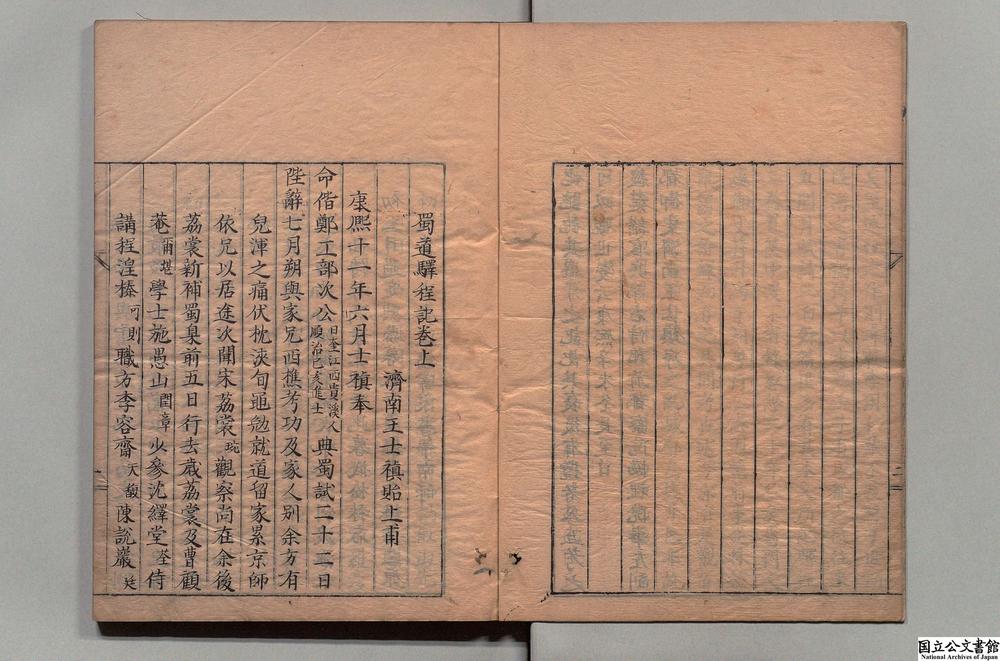 蜀道驛程記卷上
濟南王士禛貽上甫
康熙十一年六月士禛奉
命偕鄭工部次公日奎江西貴溪人順治己亥進士典蜀試二十二日
陛辭七月朔與家兄西樵考功及家人別余方有
兒渾之痛伏枕浹旬黽勉就道留家累京師
依兄以居途次聞宋荔裳琬觀察尚在余後
荔裳新補蜀臬前五日行去歲荔裳及曹顧
菴爾堪學士施愚山閏章少參沈繹堂荃侍
講程湟榛可則職方李容齋天馥陳說巖廷
二
国立公文書館
National Archives of Japan